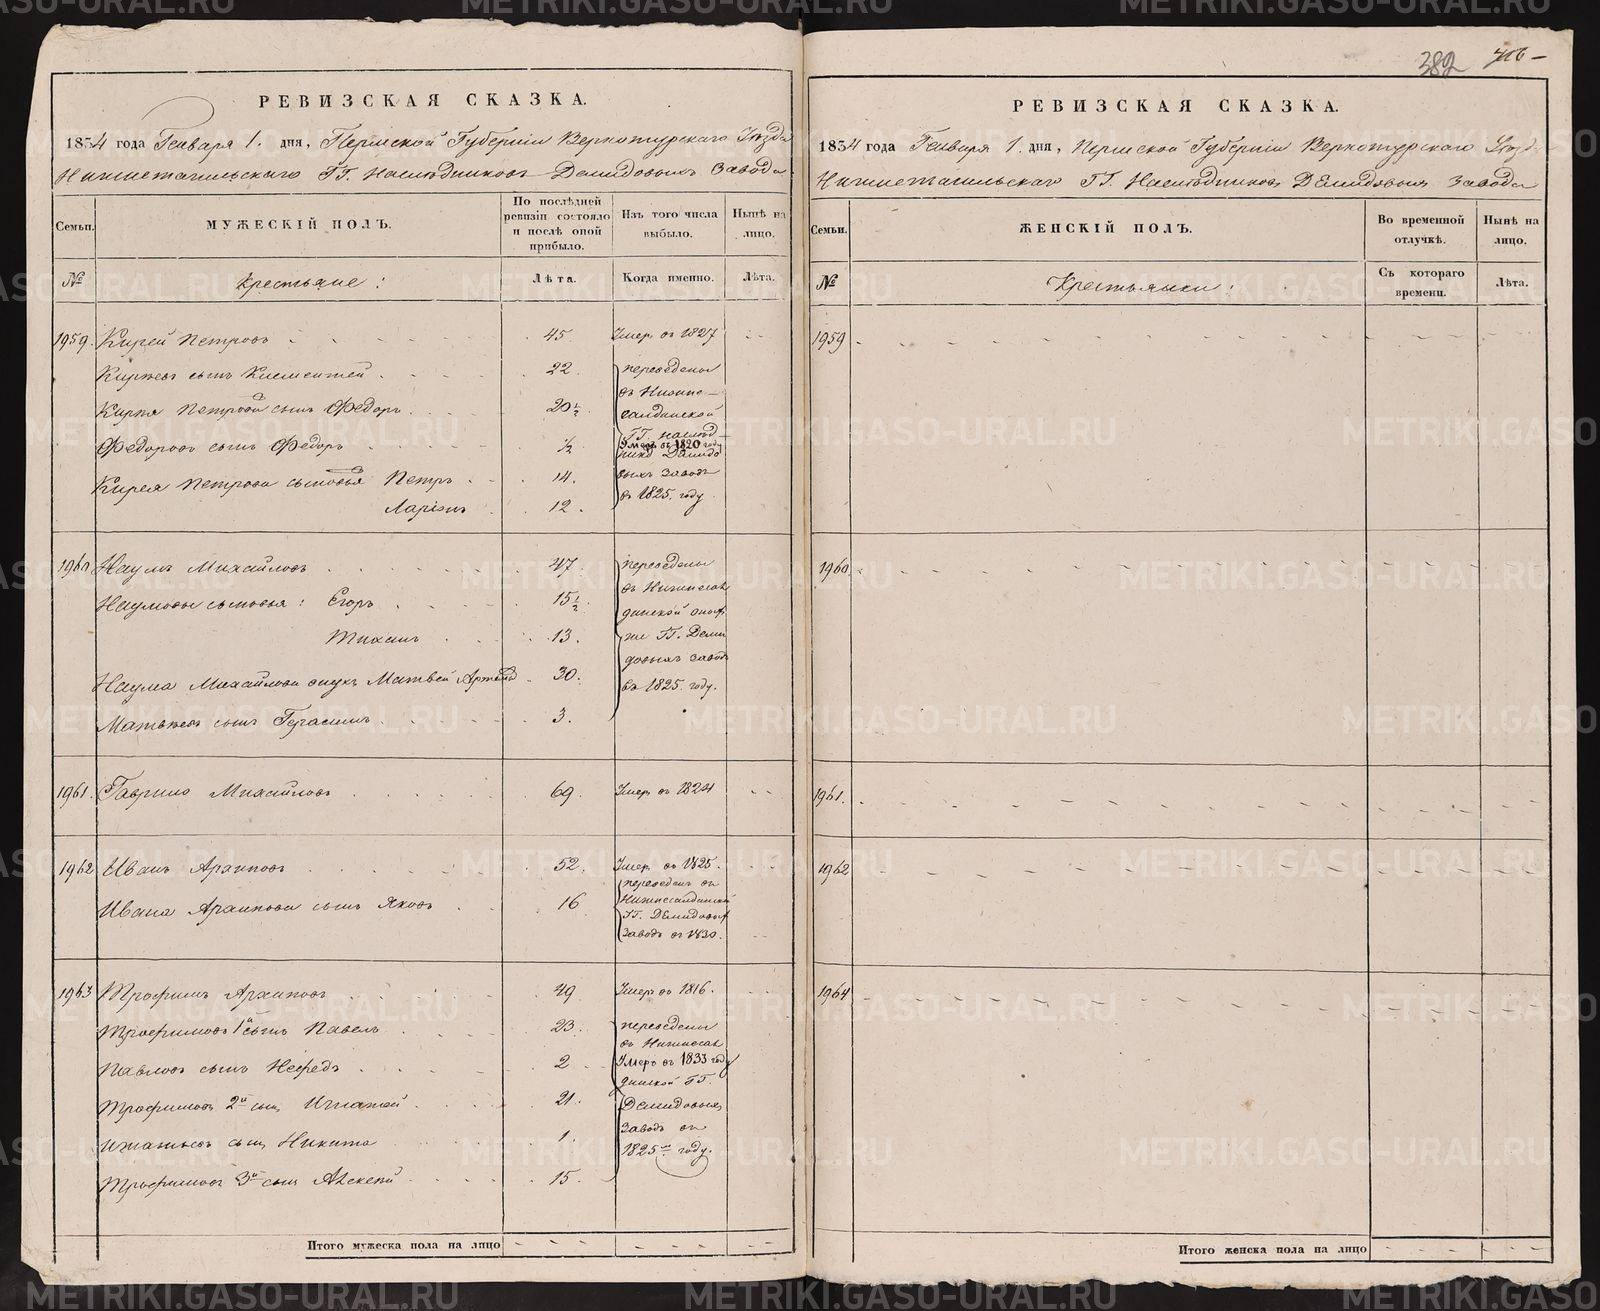 382
РЕВИЗСКАЯ СКАЗКА.
1834 года Генваря 1. дня, Пермской Губернии Верхотурскаго Уезда
Нижнетагильскаго ГГ. Наследниковъ Демидовыхъ Завода
Семьи.
МУЖЕСКІЙ ПОЛЪ.
По послѣдней ревизіи состояло и послѣ оной прибыло.
Изъ того числа выбыло.
Нынѣ на лицо.
№
Крестьяне:
Лѣта.
Когда именно.
Лѣта.
1959. Кирей Петровъ 45 Умер. въ 1827
Киреевъ сынъ Климентей 22. переведены
въ Нижне-
Кирея Петрова сынъ Федоръ 20½. салдинской
ГГ. Наслѣд
Федоровъ сынъ Федоръ ½ Умеръ въ 1820 году
Кирея Петрова сыновья Петръ 14. выхъ заводъ
въ 1825. году
Ларіонъ 12.
1960 Наумъ Михайловъ 47. переведены
въ Нижнесал
Наумовы сыновья: Егоръ 15½. динской
Тихонъ 13. ГГ. Деми
довыхъ заводъ
Наума Михайлова внукъ Матвей 30. въ 1825. году.
Матвеевъ сынъ Герасимъ 3.
1961. Гаврило Михайловъ 69. Умер. въ 1824
1962 Иванъ Архиповъ 52. Умер. въ 1825.
переведенъ въ
Ивана Архипова сынъ Яковъ 16 Нижнесалдинской
ГГ. Демидовых
Заводъ въ 1830.
1963 Трофимъ Архиповъ 49 Умеръ въ 1816.
Трофимовъ 1й сынъ Павелъ 23. переведены
въ Нижнесал
Павловъ сынъ Нефедъ 2 Умеръ въ 1833 году
динской ГГ.
Трофимовъ 2й сынъ Игнатей 21. Демидовыхъ
Заводъ въ
Игнатьевъ сынъ Никита 1. 1825мъ году.
Трофимовъ 3й сынъ Алексей 15.
Итого мужеска пола на лицо
РЕВИЗСКАЯ СКАЗКА.
1834 года Генваря 1. дня, Пермской Губерніи Верхотурскаго Уезд
Нижнетагильскаго ГГ. Наследниковъ Демидовыхъ Завода
Семьи.
ЖЕНСКІЙ ПОЛЪ.
Во временной отлучкѣ.
Нынѣ на лицо.
№
Крестьянки:
Съ котораго времени.
Лѣта.
1959
1960
1961.
1962
1964
Итого женска пола на лицо
METRIKI.GASO-URAL.RU